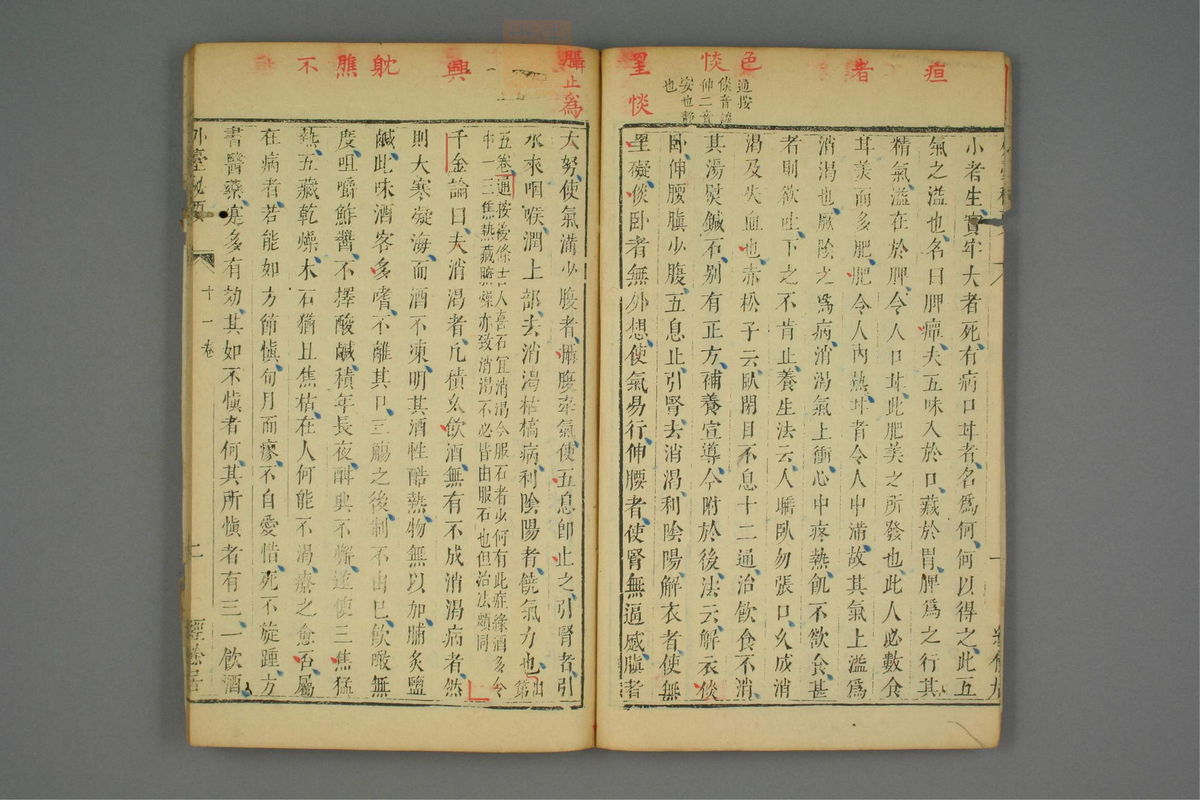 疸
者
色
惔
里
惔
通按
倓音談
伸二音
安也静
也
小者生實牢大者死有病口甘者名爲何何以得之此五
氣之溢也名曰脾癉夫五味入於口藏於胃脾爲之行其
精氣溢在於脾令人口甘此肥美之所發也此人必數食
甘美而多肥肥令人內熱甘者令人中滿故其氣上溢爲
消渴也厥陰之爲病消渴氣上衝心中疼熱飢不欲食甚
者則欲吐下之不肯止養生法云人睡臥勿張口久成消
渴及失血也赤松子云臥閉目不息十二通治飲食不消
其湯熨鍼石別有正方補養宣導今附於後法云解衣倓
臥伸腰瞋少腹五息止引腎去消渴利陰陽解衣者使無
罣礙倓臥者無外想使氣易行伸腰者使腎無逼蹙瞋者
躡
止爲
興
躭
臕
不
大努使氣滿少腹者攝腹牽氣使五息即止之引腎者引
水來咽喉潤上部去消渴枯槁病利陰陽者饒氣力也出第
五卷通按後條士人喜石宜消渴今服石者少何有此症緣酒多令
中一三焦熱藏腑燥亦致消渴不必皆由服石也但治法頗同
千金論曰夫消渴者凡積久飲酒無有不成消渴病者然
則大寒凝海而酒不凍明其酒性酷熱物無以加脯炙鹽
鹹此味酒客多嗜不離其口三觴之後制不由己飲噉無
度咀嚼鮓醬不擇酸鹹積年長夜酣興不懈遂使三焦猛
熱五藏乾燥木石猶且焦枯在人何能不渴療之愈否屬
在病者若能如方節慎旬月而瘳不自愛惜死不旋踵方
書醫藥寔多有効其如不慎者何其所慎者有三一飲酒
外臺秘要
十一卷
二
經餘居